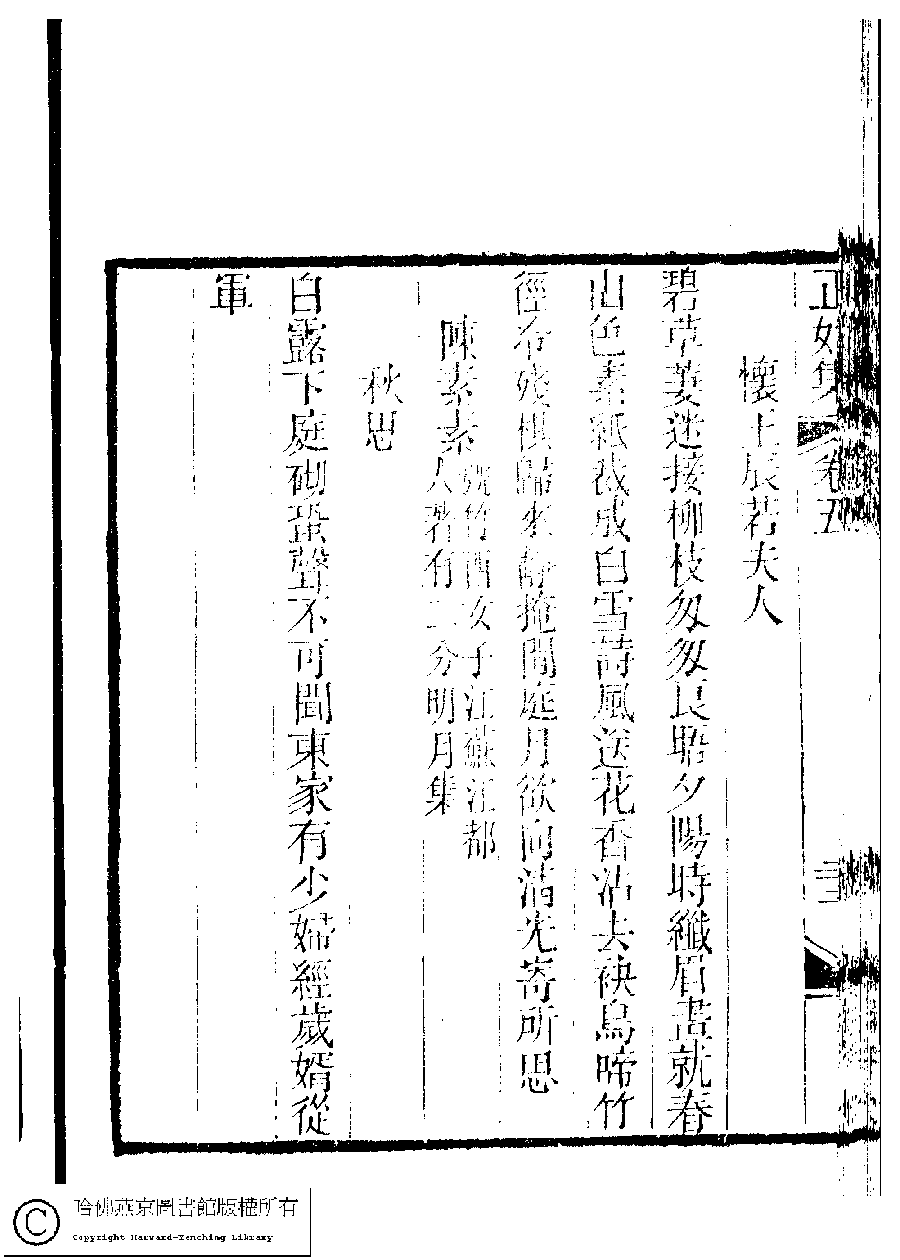 正始集 卷五 三
懷王辰若夫人
碧草萋迷接柳枝匆匆良晤夕陽時纖眉畵就春
山色素紙裁成白雪詩風送花香沾去袂鳥啼竹
徑夲殘棋歸來静掩閒庭月欲向清光寄所思
陳素素號竹西女子江蘇江都
人著有二分明月集
秋思
白露下庭砌蛩聲不可聞東家有少婦經歲婿從
軍
哈佛燕京圖書館版權所有
Copyright Harvard-Yenching Library